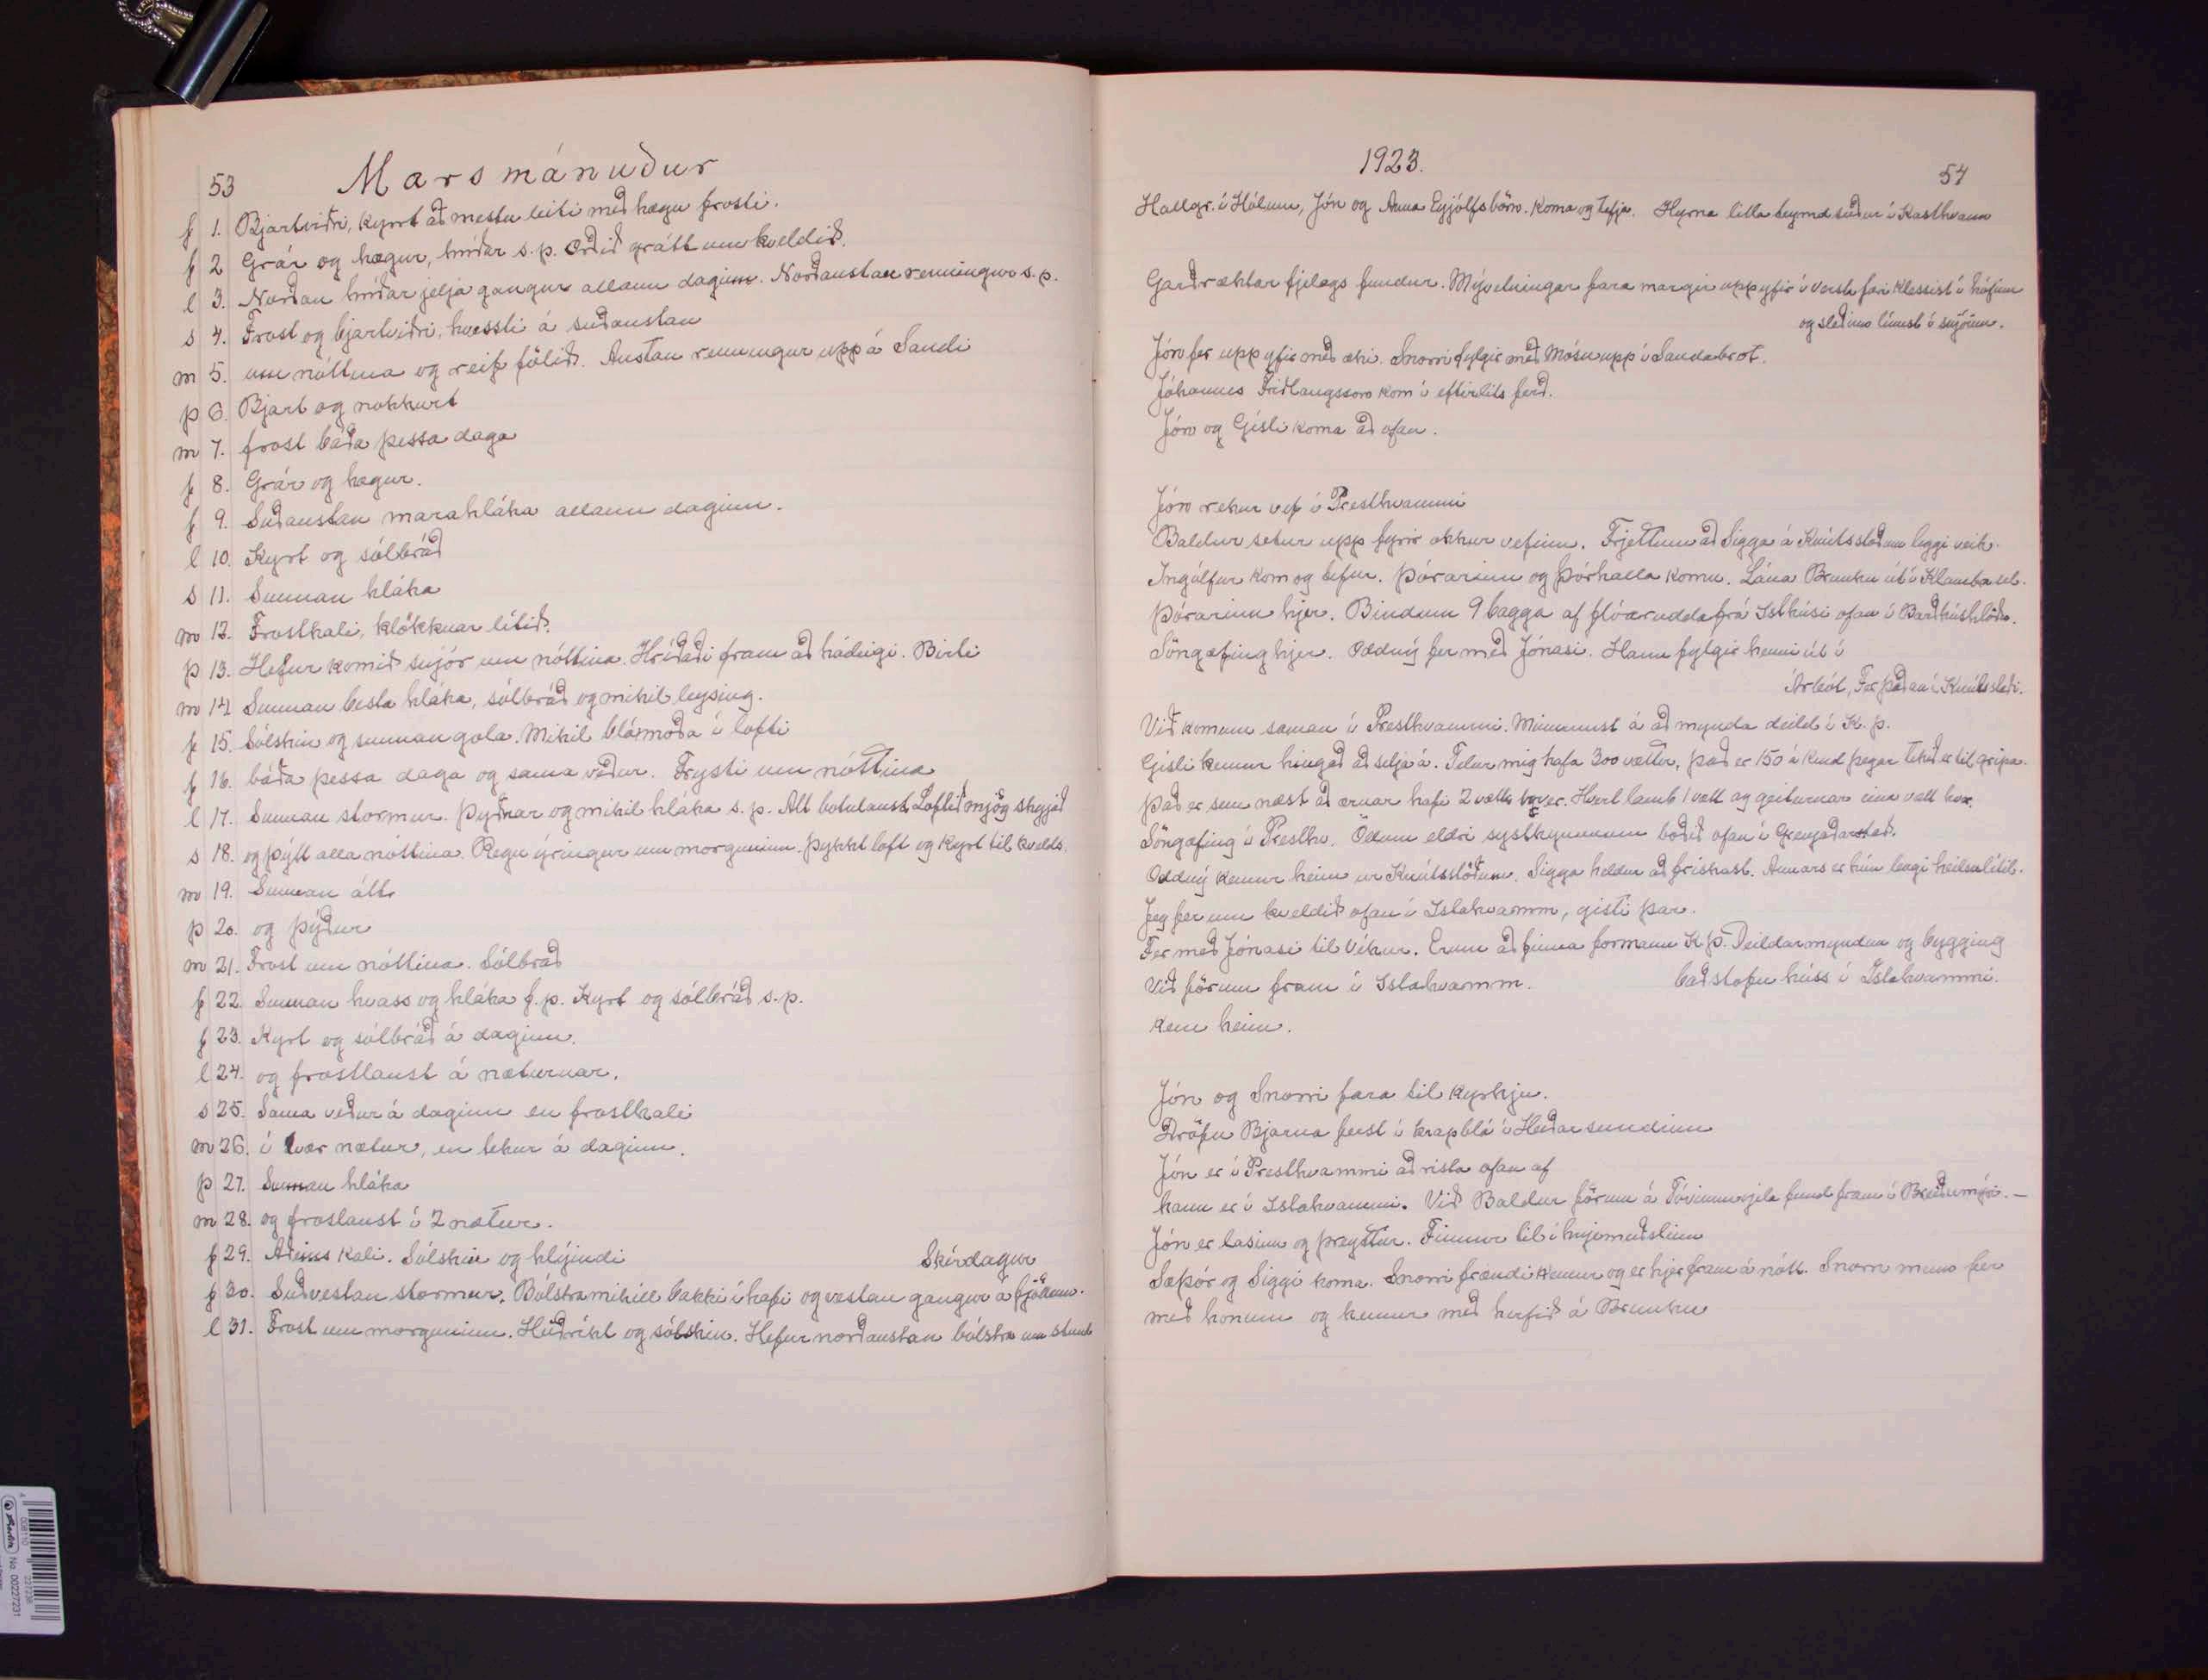 53 Marsmánuður
f 1. Bjartviðri, kyrrt að mestu leiti með hægu frosti.
f 2 Grár og hægur, hríðar s.p. Orðið grátt um kveldið.
l 3. Norðan hríðar jelja gangur allann daginn. Norðaustan renningur s.p.
s 4. Frost og bjartviðri, hvessti á suðaustan
m 5. um nóttina og reif fölið. Austan renningur upp á Sandi
þ 6. Bjart og nokkurt
m 7. frost báða þessa daga
f 8. Grár og hægur.
f 9. Suðaustan marahláka allann daginn.
l 10. Kyrt og sólbráð
s 11. Sunnan hláka
m 12. Frostkali, klökknar lítið.
þ 13. Hefur komið snjór um nóttina. Hríðaði fram að hádeigi. Birti
m 14 Sunnan besta hláka, sólbráð og mikil leysing.
f 15. Sólskin og sunnan gola. Mikil blámóða í lofti
f 16. báða þessa daga og sama veður. Frysti um nóttina
l 17. Sunnan stormur. Þýðnar og mikil hláka s.p. Alt botnlaust. Loftið mjög skyjað
s 18. og þýtt alla nóttina. Regn ýringur um morguninn. Þykkt loft og kyrt til kvelds.
m 19. Sunnan átt
þ 20. og þýður
m 21. Frost um nóttina. Sólbráð
f 22. Sunnan hvass og hláka f.p. Kyrt og sólbráð s.p.
f 23. Kyrt og sólbráð á daginn.
l 24. og frostlaust á næturnar.
s 25. Sama veður á daginn en frostkali
m 26. í tvær nætur, en tekur á daginn.
þ 27. Sunnan hláka
m 28. og froslaust í 2 nætur.
f 29. Aðeins kali. Sólskin og hlýindi Skírdagur
f 30. Suðvestan stormur. Bólstra mikill bakki í hafi og vestan gangur á fjöllum.
l 31. Frost um morguninn. Heiðríkt og sólskin. Hefur norðaustan bólstra um stund
1923. 54
Hallgr. í Hólum, Jón og Anna Eyjólfsbörn. Koma og tefja. Hyrna litla teymd suður í Kasthvamm
Garðræktar fjelags fundur. Mývetningar fara margir uppyfir í versta færi klessist í hófum
og sleðinn límist í snjóinn.
Jón fer uppyfir með æki. Snorri fylgir með Mósu upp í Sandabrot.
Jóhannes Friðlaugsson kom í eftirlits ferð.
Jón og Gísli koma að ofan.
Jón rekur vef í Presthvammi
Baldur setur upp fyrir okkur vefinn. Frjettum að Sigga á Knútsstöðum liggi veik.
Ingólfur kom og tefur. Þórarinn og Þórhalla komu. Lána Brunku út í Klambrasel.
Þórarinn hjer. Bindum 9 bagga af flóarudda frá Isthúsi ofan í Barðhúshlöðu.
Söngæfing hjer. Oddný fer með Jónasi. Hann fylgir henni út í
Árbót, Fer þaðan í Knútsstaði.
Við komum saman í Presthvammi. Minnumst á að mynda deild í K.þ.
Gísli kemur hingað að setja á. Telur mig hafa 300 vættir, það er 150 á kind þegar tekið er til gripa.
Það er sem næst að ærnar hafi 2 vætti hver. Hvert lamb 1 vætt og geiturnar eina vætt hver.
Söngæfing í Presthv. Ödum eldri systkynunum boðið ofan í Grenjaðarstað.
Oddný kemur heim úr Knútsstöðum. Sigga heldur að friskast. Annars er hún lengi heilsulítil.
Jeg fer um kveldið ofan í Islahvamm, gisti þar.
Fer með Jónasi til Víkur. Erum að finna formann K.þ. Deildarmyndun og bygging
Við förum fram í Islahvamm. baðstofu húss í Islahvammi.
Kem heim.
Jón og Snorri fara til kyrkju.
Dröfn Bjarna ferst í krapblá í Heiðarsundinu
Jón er í Presthvammi að rista ofan af
hann er í Islahvammi. Við Baldur förum á Tóvinnuvjela fund fram í Breiðumýri. —
Jón er lasinn og þreyttur. Finnur til í hnjemeiðslinu
Sæþór og Siggi koma. Snorri frændi kemur og er hjer fram á nótt. Snorri minn fer
með honum og kemur með herfið á Brunku